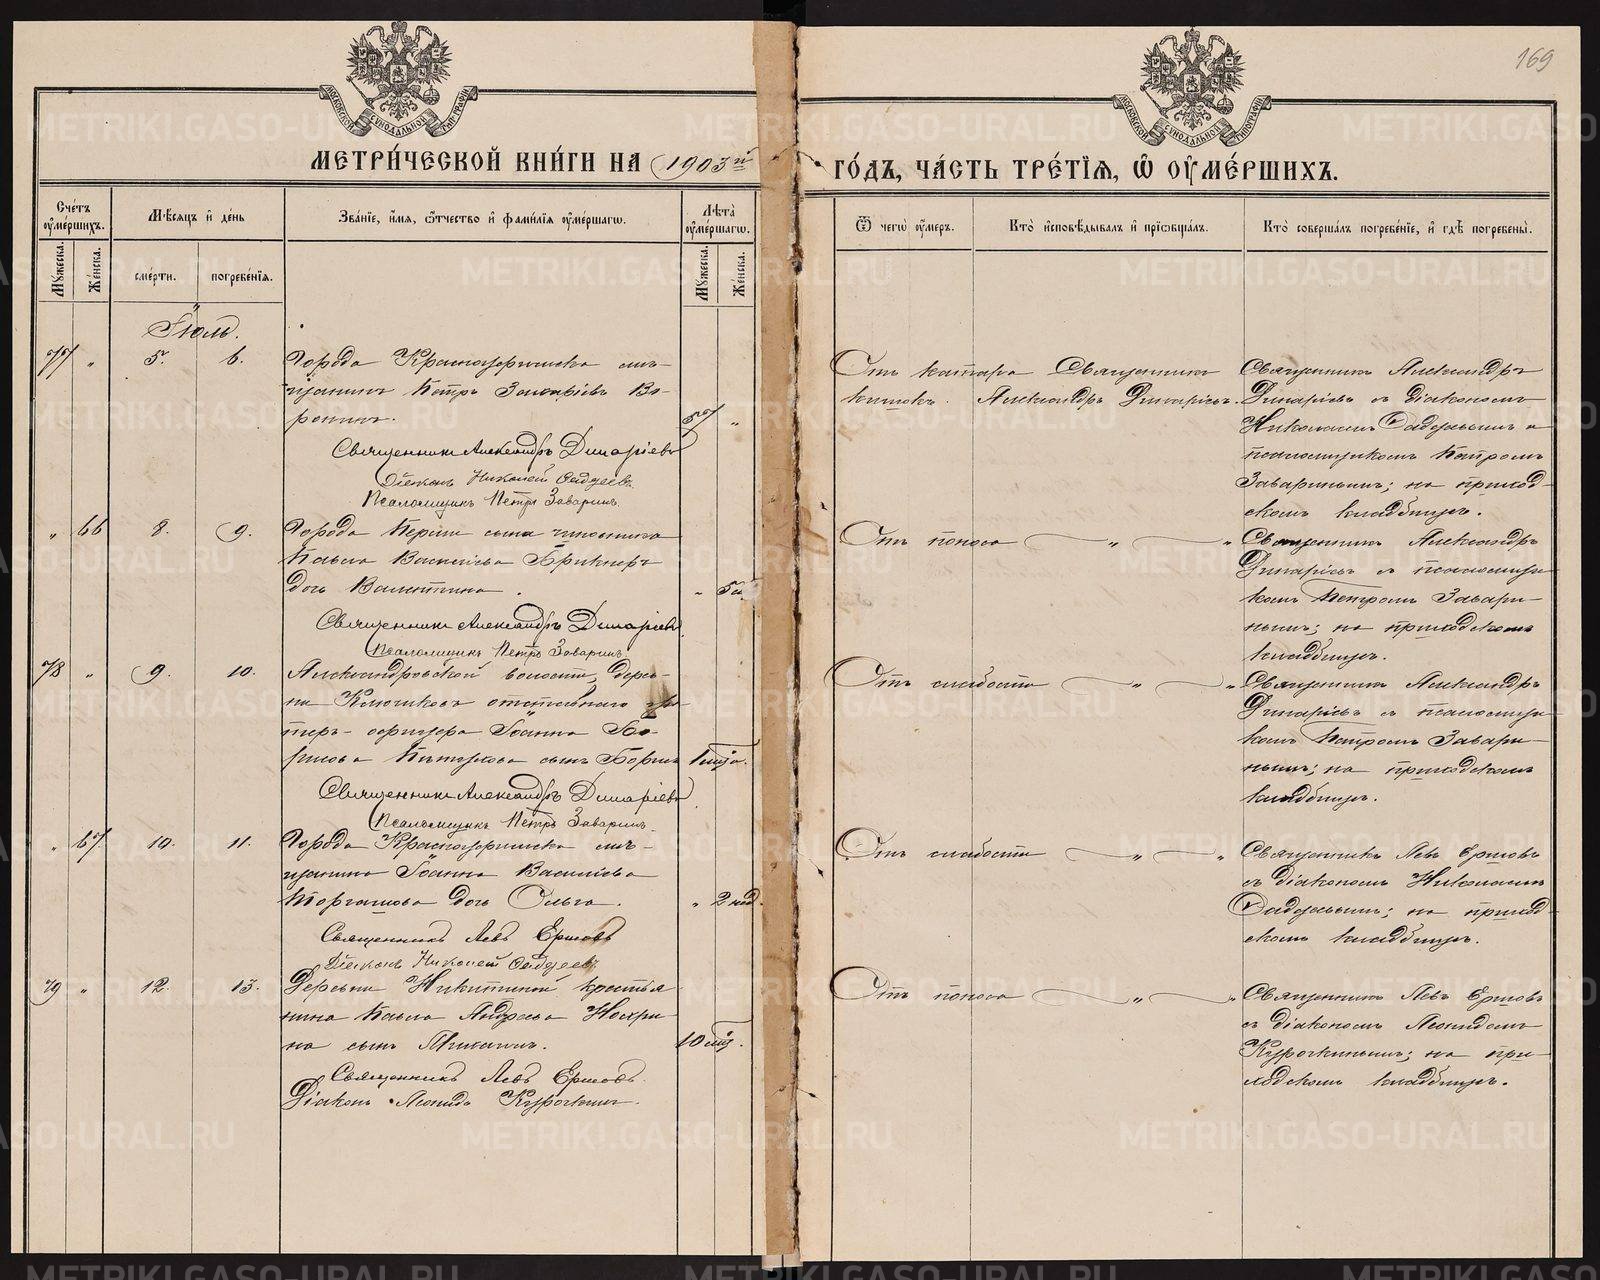 169
МОСКОВСКОЙ СѴНОДАЛЬНОЙ ТИПОГРАФІИ
МОСКОВСКОЙ СѴНОДАЛЬНОЙ ТИПОГРАФІИ
МЕТРИ́ЧЕСКОЙ КНИ́ГИ НА 1903й
ГО́ДЪ, ЧА́СТЬ ТРЕ́ТІѦ, Ѡ ОУМЕ́РШИХЪ.
Сче́тъ оумершихъ.
Мѣ́сяцъ и де́нь
Зва́ніе, и́мя, ѻ́тчество и фами́лія оуме́ршагѡ.
Лѣта̀ оуме́ршагѡ.
Ѿ чегѡ̀ оу́меръ.
Кто̀ и̓сповѣ́дывалъ и прїѡбща́лъ.
Кто̀ соверша́лъ погребе́ніе, и гдѣ̀ погребены̀.
Мꙋжеска.
Же́нска.
сме́рти.
погребе́нїя.
Мꙋжеска.
Же́нска.
Іюль.
77 " 5. 6. Города Красноуфимска мѣ-
щанинъ Петръ Захаріевъ Во-
ронинъ. 57 "
Священникъ Александръ Динаріевъ
Діаконъ Николай Фаддеевъ
Псаломщикъ Петръ Заваринъ.
Отъ катара
кишокъ.
Священникъ
Александръ Динаріевъ.
Священникъ Александръ
Динаріевъ съ діакономъ
Николаемъ Фаддеевымъ и
псаломщикомъ Петромъ
Заваринымъ; на приход-
скомъ кладбищѣ.
" 66 8. 9. Города Перми сына чиновника
Павла Васильева Брикнеръ
дочь Валентина. " 5 м.
Священникъ Александръ Динаріевъ
Псаломщикъ Петръ Заваринъ.
Отъ поноса " "
Священникъ Александръ
Динаріевъ съ псаломщи-
комъ Петромъ Завари-
нымъ; на приходскомъ
кладбищѣ.
78 " 9. 10. Александровской волости, дерев-
ни Ключиковъ отставного ун-
теръ-офицера Іоанна Бо-
рисова сынъ Борисъ 1 мѣс.
Священникъ Александръ Динаріевъ
Псаломщикъ Петръ Заваринъ.
Отъ слабости " "
Священникъ Александръ
Динаріевъ съ псаломщи-
комъ Петромъ Завари-
нымъ; на приходскомъ
кладбищѣ.
" 67 10. 11. Города Красноуфимска мѣ-
щанина Іоанна Васильева
Торгашова дочь Ольга. " 2 нед.
Священникъ Левъ Ершовъ
Діаконъ Николай Фаддеевъ
Отъ слабости " "
Священникъ Левъ Ершовъ
съ діакономъ Николаемъ
Фаддеевымъ; на приход-
скомъ кладбищѣ.
79 " 12. 13. Деревни Никитиной крестья-
нина Павла Андреева
сынъ 10 мѣс.
Священникъ Левъ Ершовъ.
Діаконъ Леонидъ Курочкинъ.
Отъ поноса " "
Священникъ Левъ Ершовъ
съ діакономъ Леонидомъ
Курочкинымъ; на при-
ходскомъ кладбищѣ.
METRIKI.GASO-URAL.RU